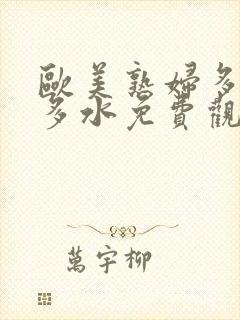 歐美熟婦多
多水免費觀
萬宇柳